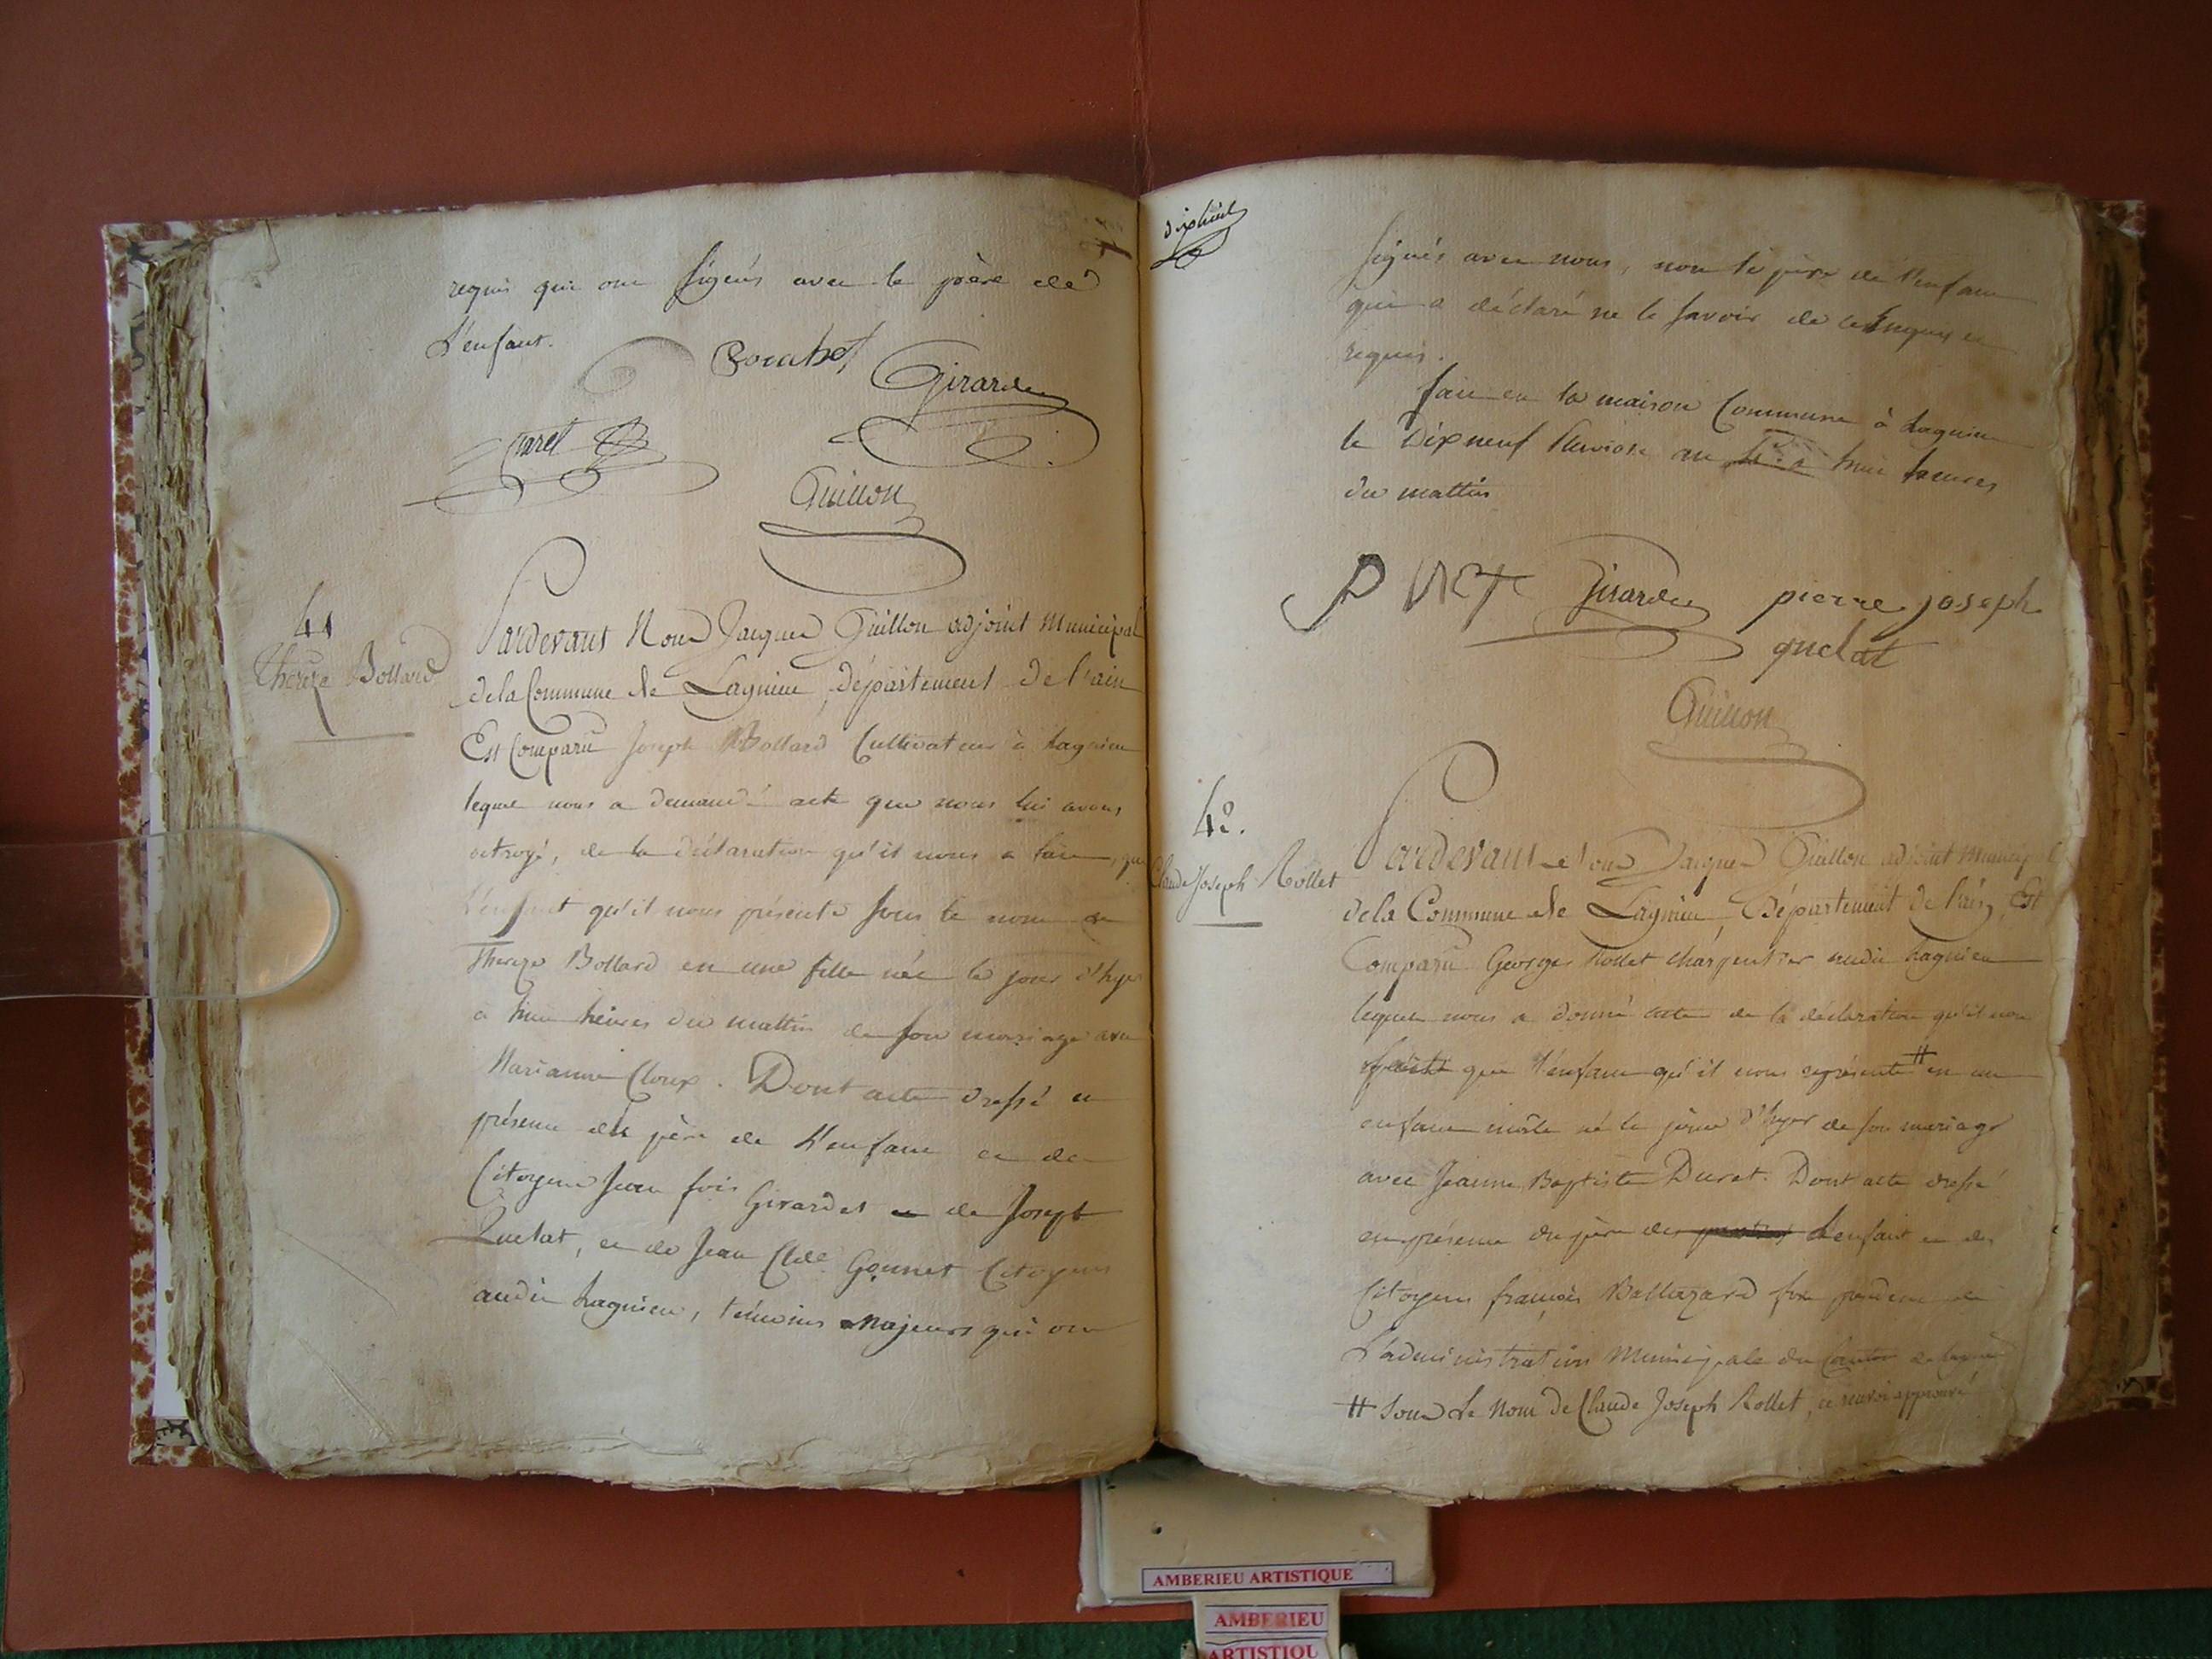 requis qui ont signés avec le père de
L'enfant.
Bouchet
Girardet
Guillon
41
Thereze Bollard
Pardevant Nous Jacques Guillon adjoint Municipal
de la Commune de Lagnieu, département de l'ain
Est Comparu Joseph Bollard Cultivateur à Lagnieu
lequel nous a demandé acte que nous lui avons
octroyé, de la déclaration qu'il nous a faite, que
L'enfant qu'il nous présente sous le nom de
Thereze Bollard est une fille née le jour d'hyer
à huit heures du mattin de son mariage avec
Marianne Cloup. Dont acte dressé en
présence du père de L'enfant et de
Citoyens Jean fois Girardet et de Joseph
Quelat, et de Jean Cde Gonnet Citoyens
audit Lagnieu, témoins Majeurs qui ont
dixhuit
signés avec nous, non le père de l'enfant
qui a déclaré ne le savoir de ce Enquis et
requis.
fait en la maison Commune à Lagnieu
le Dix neuf Pluviose an huit heures
du mattin
Girardet pierre joseph
quelat
Guillon
42.
Claude Joseph Rollet
Pardevant Nous Jacques Guillon adjoint Municipal
de la Commune de Lagnieu, Département de l'ain, Est
Comparu Georges Rollet charpentier audit Lagnieu
lequel nous a donné acte de la déclaration qu'il nous
que L'enfant qu'il nous représente # est un
enfant mâle né le jour d'hyer de son mariage
avec Jeanne Baptiste Duret. Dont acte dressé
en présence du père de L'enfant et des
Citoyens françois Balthazard
L'administration Municipale du Canton de Lagnieu
# Sous Le Nom De Claude Joseph Rollet, ce renvoi approuvé
AMBERIEU ARTISTIQUE
AMBERIEU